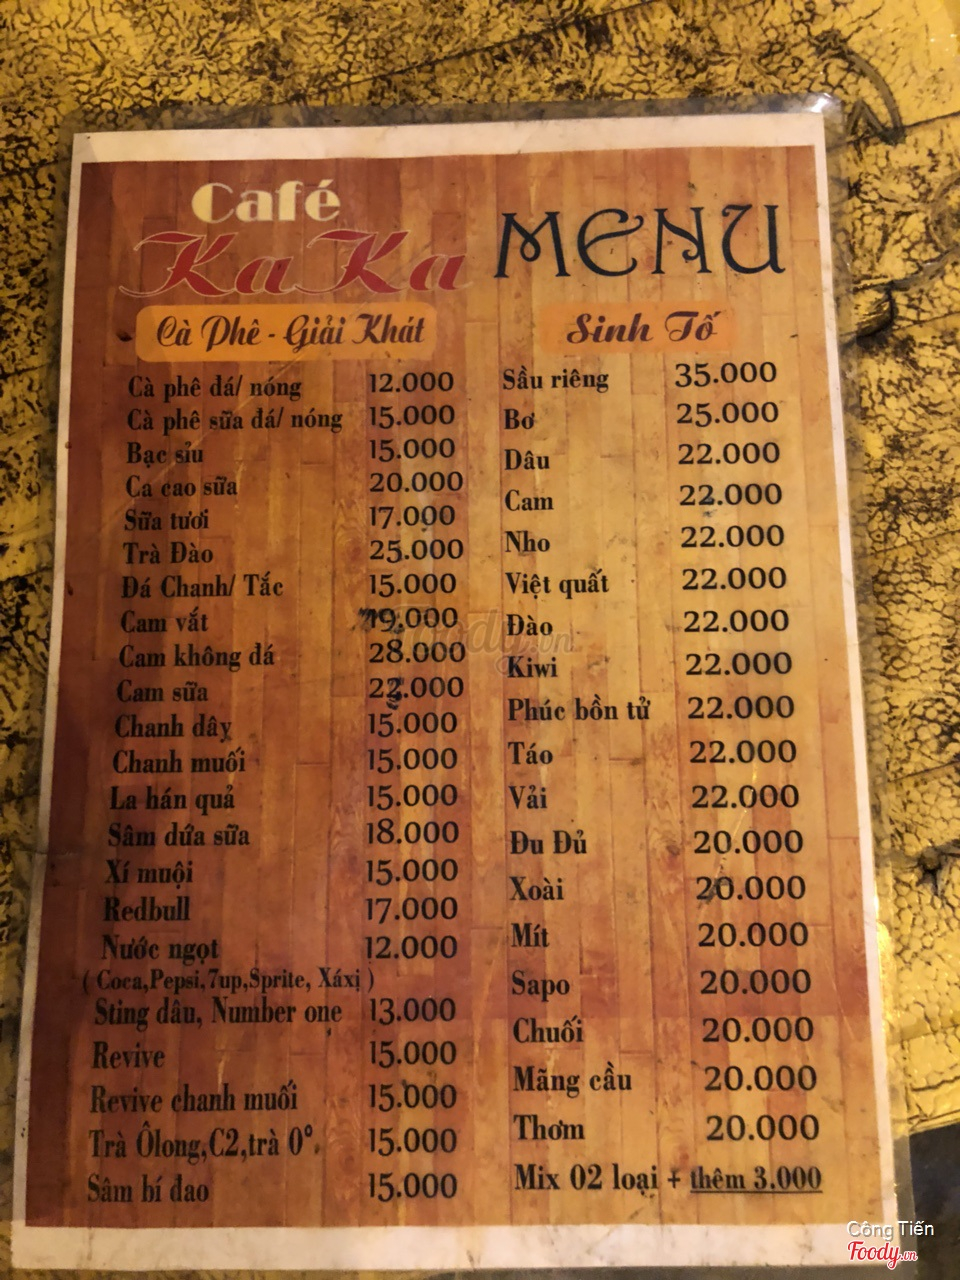 Café
KaKa
MENU
Cà Phê - Giải Khát
Cà phê đá/ nóng 12.000
Cà phê sữa đá/ nóng 15.000
Bạc sỉu 15.000
Ca cao sữa 20.000
Sữa tươi 17.000
Trà Đào 25.000
Đá Chanh/ Tắc 15.000
Cam vắt 19.000
Cam không đá 28.000
Cam sữa
Chanh dây 15.000
Chanh muối 15.000
La hán quả 15.000
Sâm dứa sữa 18.000
Xí muội 15.000
Redbull 17.000
Nước ngọt 12.000
( Coca,Pepsi,7up,Sprite, Xáxị )
Sting dâu, Number one 13.000
Revive 15.000
Revive chanh muối 15.000
Trà Ôlong,C2,trà 0° 15.000
Sâm bí đao 15.000
Sinh Tố
Sầu riêng 35.000
Bơ 25.000
Dâu 22.000
Cam 22.000
Nho 22.000
Việt quất 22.000
Đào 22.000
Kiwi 22.000
Phúc bồn tử 22.000
Táo 22.000
Vải 22.000
Đu Đủ 20.000
Xoài 20.000
Mít 20.000
Sapo 20.000
Chuối 20.000
Mãng cầu 20.000
Thơm 20.000
Mix 02 loại + thêm 3.000
Foody.vn
Công Tiến
Foody.vn